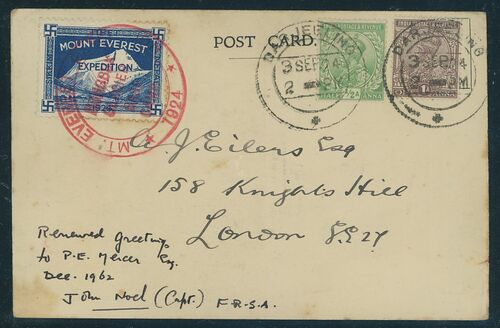 POST CARD.
MOUNT EVEREST
EXPEDITION
MT. EVEREST
1924
DARJEELING
3 SEP 24
INDIA POSTAGE & REVENUE
½A
ANNA
DARJEELING
3 SEP 24
A. J. Eilers Esq
158 Knights Hill
London S.E.27
Renewed Greetings
to P.E. Mercer Esq.
Dec. 1962
John Noel (Capt.) F.R.S.A.